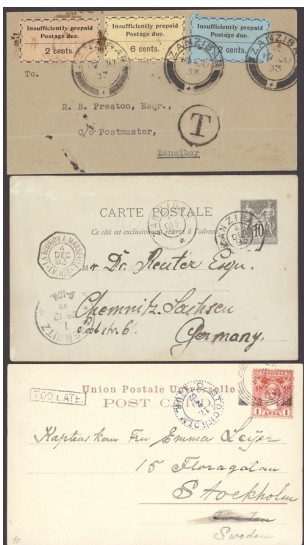 Insufficiently prepaid
Postage due.
2 cents.
Insufficiently prepaid
Postage due.
6 cents.
Insufficiently prepaid
Postage due.
ZANZIBAR
33
ZANZIBAR
33
To.
R. B. Preston, Esqr.,
C/o Postmaster,
Zanzibar
T
CARTE POSTALE
Ce côté est exclusivement réservé à l'adresse
ZANZIBAR
10
4
DEC
93
Dr. Reuter Esqu.
Chemnitz, Sachsen
Germany.
CHEMNITZ
Union Postale Universelle
POST CARD
TOO LATE.
STOCKHOLM
ZANZIBAR
1 ANNA 1
Emma
15 Floragatan
Stockholm
Sweden